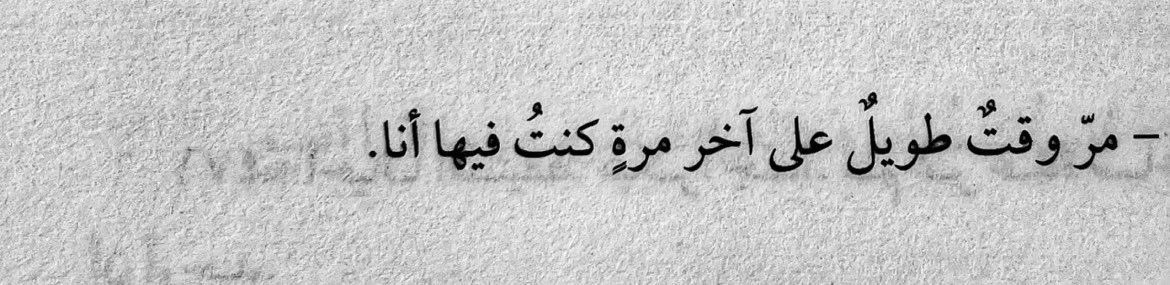 – مرّ وقتٌ طويلٌ على آخر مرةٍ كنتُ فيها أنا.